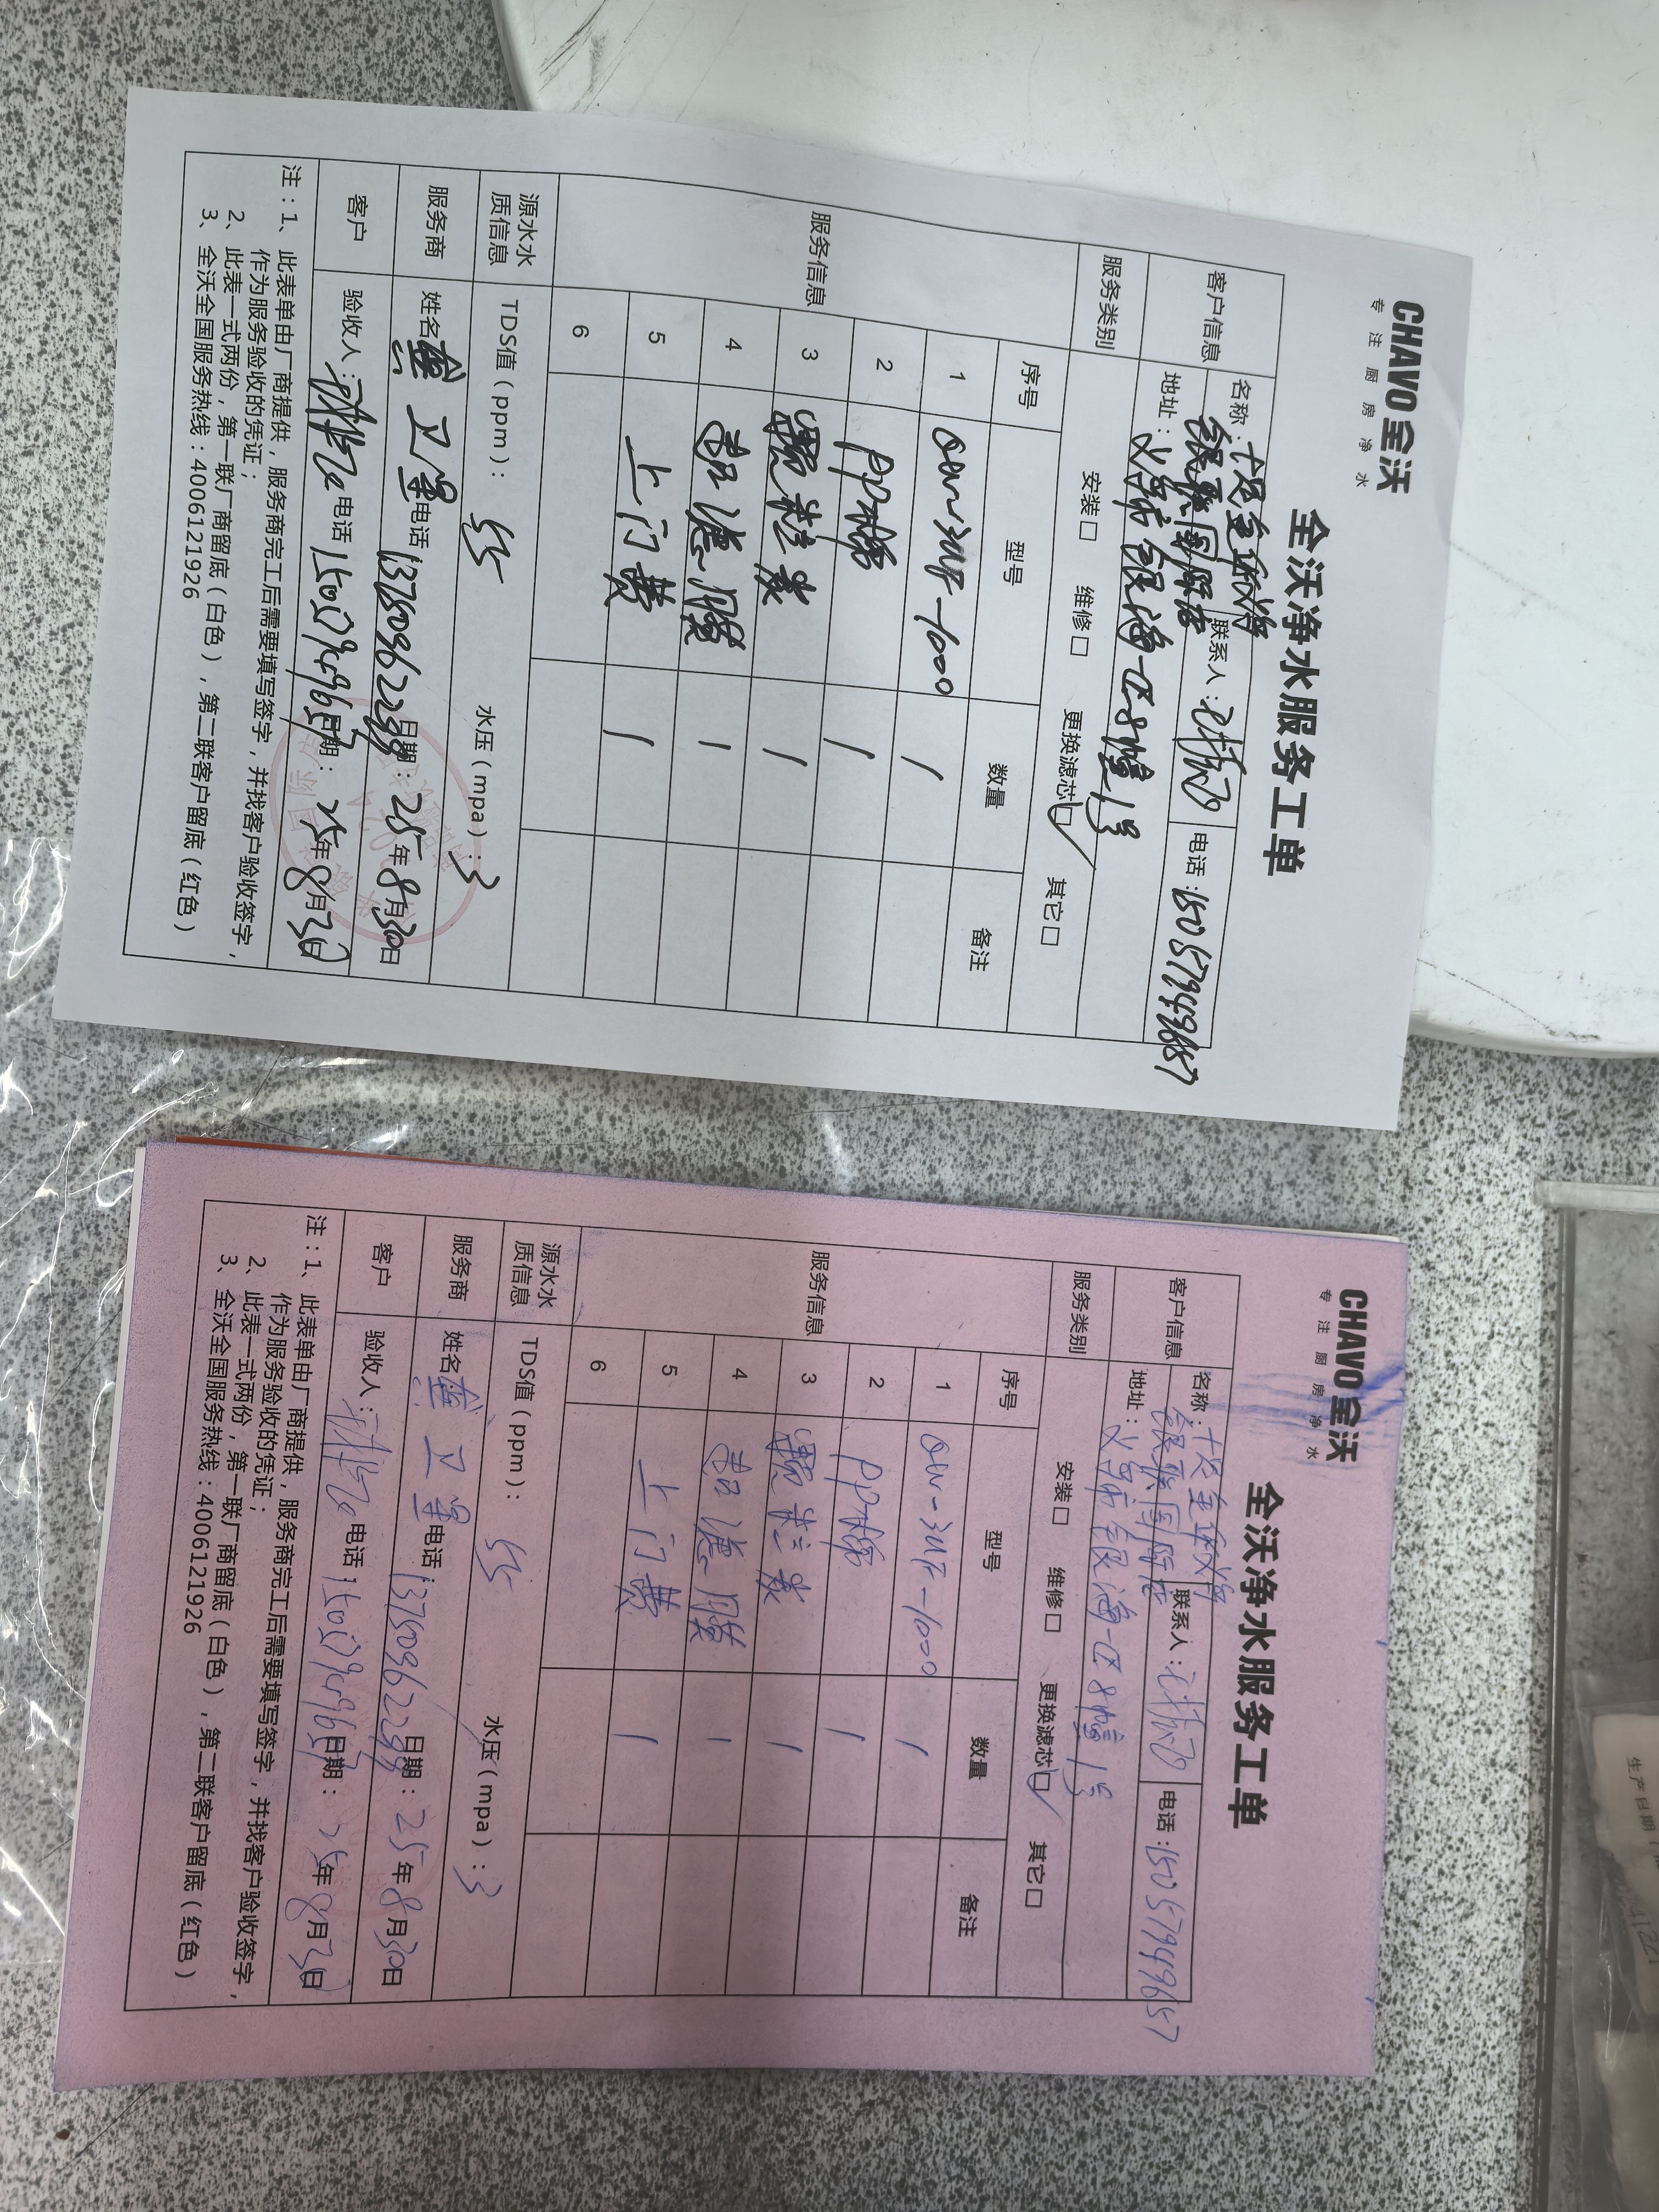 CHAVO 全沃
专注厨房净水
全沃净水服务工单
客户信息
名称：
银泰国际店
联系人：
电话：15057949657
地址：义乌市银海一区8幢1号
服务类别
安装□ 维修□ 更换滤芯☑ 其它□
服务信息
序号 型号 数量 备注
1 QW-3UF-1000 1
2 PP棉 1
3 1
4 超滤膜 1
5 上门费 1
6
源水水质信息
TDS值（ppm）：55 水压（mpa）：3
服务商
姓名 卫星 电话：13750962288 日期：25年8月30日
客户
验收人： 电话：15057949657 日期：25年8月30日
注：1、此表单由厂商提供，服务商完工后需要填写签字，并找客户验收签字，
作为服务验收的凭证；
2、此表一式两份，第一联厂商留底（白色），第二联客户留底（红色）
3、全沃全国服务热线：4006121926
CHAVO 全沃
专注厨房净水
全沃净水服务工单
客户信息
名称：
银泰国际店
联系人：
电话：15057949657
地址：义乌市银海一区8幢1号
服务类别
安装□ 维修□ 更换滤芯☑ 其它□
服务信息
序号 型号 数量 备注
1 QW-3UF-1000 1
2 PP棉 1
3 1
4 超滤膜 1
5 上门费 1
6
源水水质信息
TDS值（ppm）：55 水压（mpa）：3
服务商
姓名 卫星 电话：13750962288 日期：25年8月30日
客户
验收人： 电话：15057949657 日期：25年8月30日
注：1、此表单由厂商提供，服务商完工后需要填写签字，并找客户验收签字，
作为服务验收的凭证；
2、此表一式两份，第一联厂商留底（白色），第二联客户留底（红色）
3、全沃全国服务热线：4006121926
生产日期